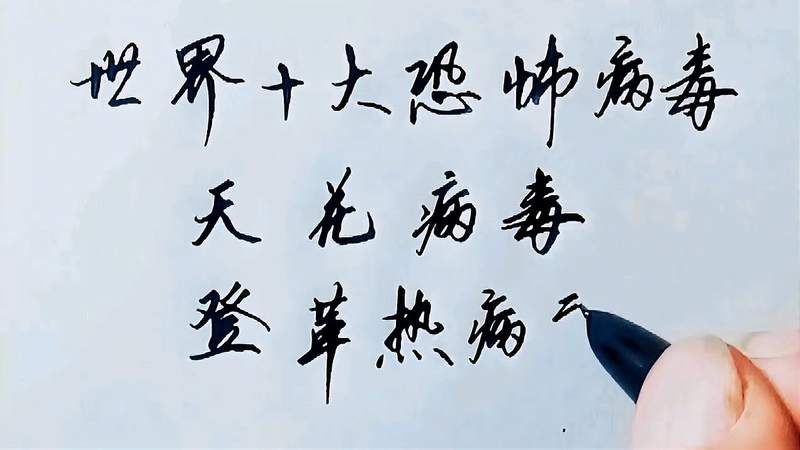 世界十大恐怖病毒
天花病毒
登革热病